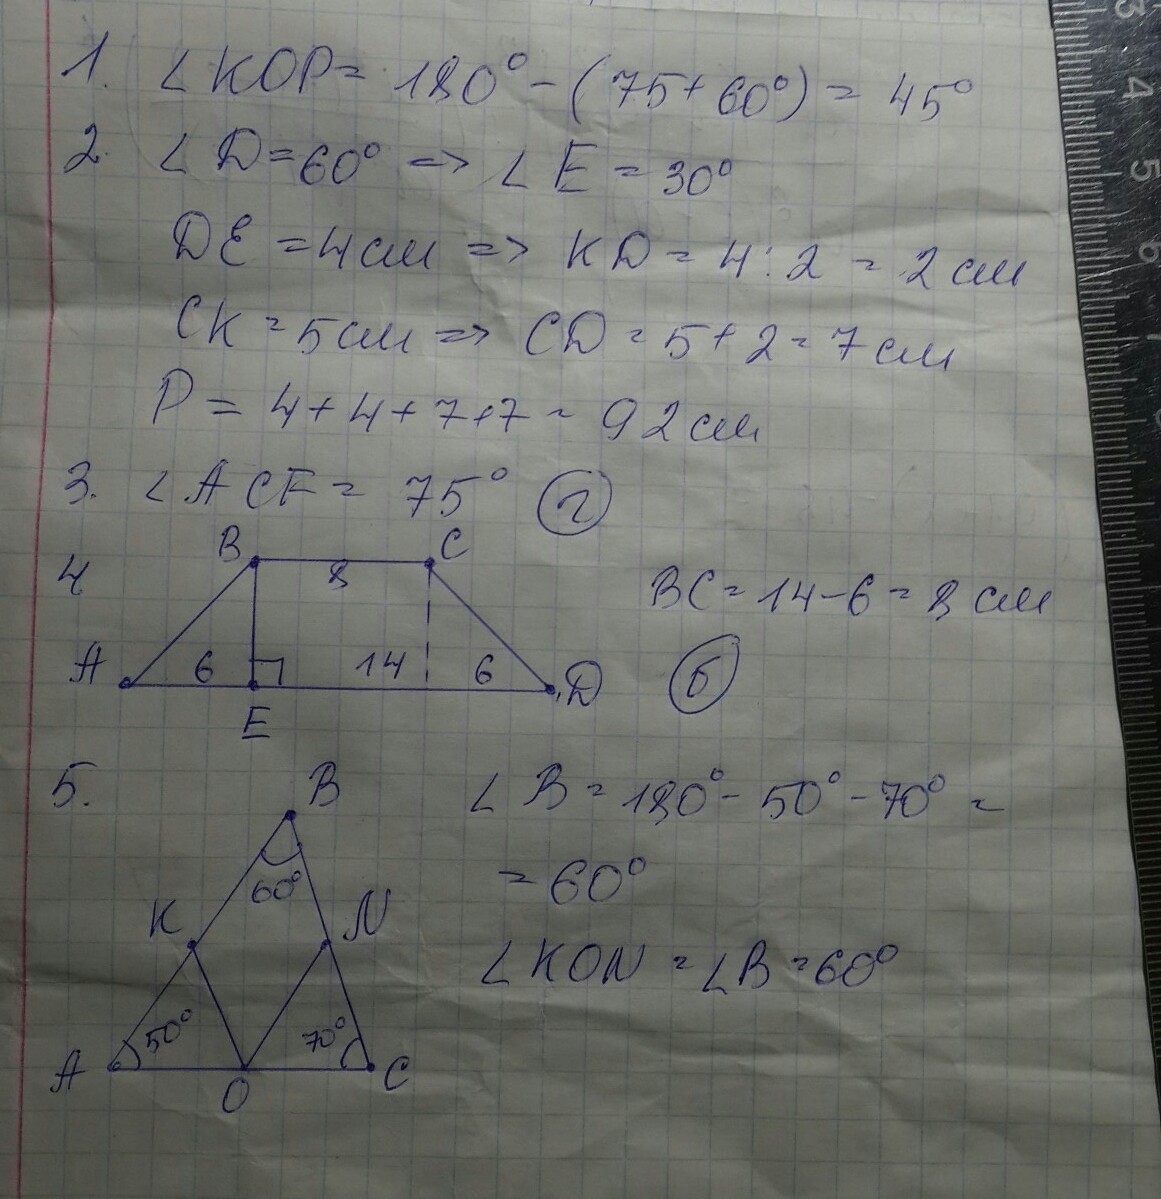 1. ∠KOP = 180° - (75 + 60°) = 45°
2. ∠D = 60° => ∠E = 30°
DE = 4 см => KD = 4 : 2 = 2 см
CK = 5 см => CD = 5 + 2 = 7 см
P = 4 + 4 + 7 + 7 = 92 см
3. ∠ACF = 75° г
4
B C
8
A 6 14 6 D
E
BC = 14 - 6 = 8 см
б
5.
B
60°
K N
50° 70°
A O C
∠B = 180° - 50° - 70° =
= 60°
∠KON = ∠B = 60°
3
4
5
6
7